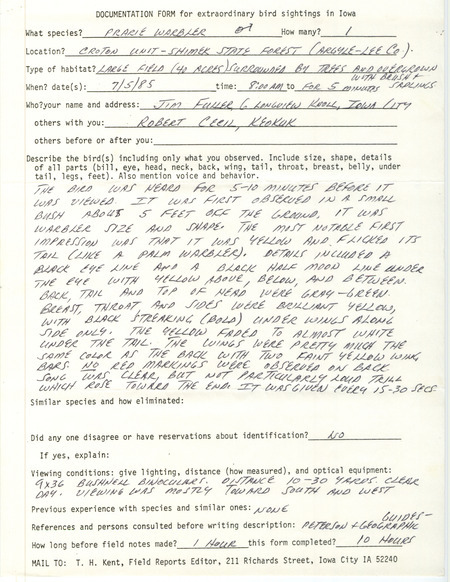 DOCUMENTATION FORM for extraordinary bird sightings in Iowa
What species? PRARIE WARBLER ♂ How many? 1
Location? CROTON UNIT-SHIMEK STATE FOREST (ARGYLE-LEE CO).
Type of habitat? LARGE FIELD (40 ACRES) SURROUNDED BY TREES AND OVERGROWN
WITH BRUSH & SAPLINGS
When? date(s): 7/5/85 time: 8:00 AM to FOR 5 MINUTES
Who? your name and address: JIM FULLER, 6 LONGVIEW KNOLL, IOWA CITY
others with you: ROBERT CECIL, KEOKUK
others before or after you:
Describe the bird(s) including only what you observed. Include size, shape, details
of all parts (bill, eye, head, neck, back, wing, tail, throat, breast, belly, under
tail, legs, feet). Also mention voice and behavior.
THE BIRD WAS HEARD FOR 5-10 MINUTES BEFORE IT
WAS VIEWED. IT WAS FIRST OBSERVED IN A SMALL
BUSH ABOUT 5 FEET OFF THE GROUND. IT WAS
WARBLER SIZE AND SHAPE. THE MOST NOTABLE FIRST
IMPRESSION WAS THAT IT WAS YELLOW AND FLICKED ITS
TAIL (LIKE A PALM WARBLER). DETAILS INCLUDED A
BLACK EYE LINE AND A BLACK HALF MOON LINE UNDER
THE EYE WITH YELLOW ABOVE, BELOW, AND BETWEEN.
BACK, TAIL AND TOP OF HEAD WERE GRAY-GREEN.
BREAST, THROAT AND SIDES WERE BRILLIANT YELLOW,
WITH BLACK STREAKING (BOLD) UNDER WINGS ALONG
SIDE ONLY. THE YELLOW FADED TO ALMOST WHITE
UNDER THE TAIL. THE WINGS WERE PRETTY MUCH THE
SAME COLOR AS THE BACK WITH TWO FAINT YELLOW WING
BARS. NO RED MARKINGS WERE OBSERVED ON BACK.
SONG WAS CLEAR, BUT NOT PARTICULARLY LOUD TRILL
WHICH ROSE TOWARD THE END. IT WAS GIVEN EVERY 15-30 SECS.
Similar species and how eliminated:
Did any one disagree or have reservations about identification? NO
If yes, explain:
Viewing conditions: give lighting, distance (how measured), and optical equipment:
9x36 BUSHNELL BINOCULARS. DISTANCE 10-30 YARDS. CLEAR
DAY. VIEWING WAS MOSTLY TOWARD SOUTH AND WEST
Previous experience with species and similar ones: NONE
References and persons consulted before writing description: PETERSON + GEOGRAPHIC
GUIDES-
How long before field notes made? 1 HOUR this form completed? 10 HOURS
MAIL TO: T. H. Kent, Field Reports Editor, 211 Richards Street, Iowa City IA 52240